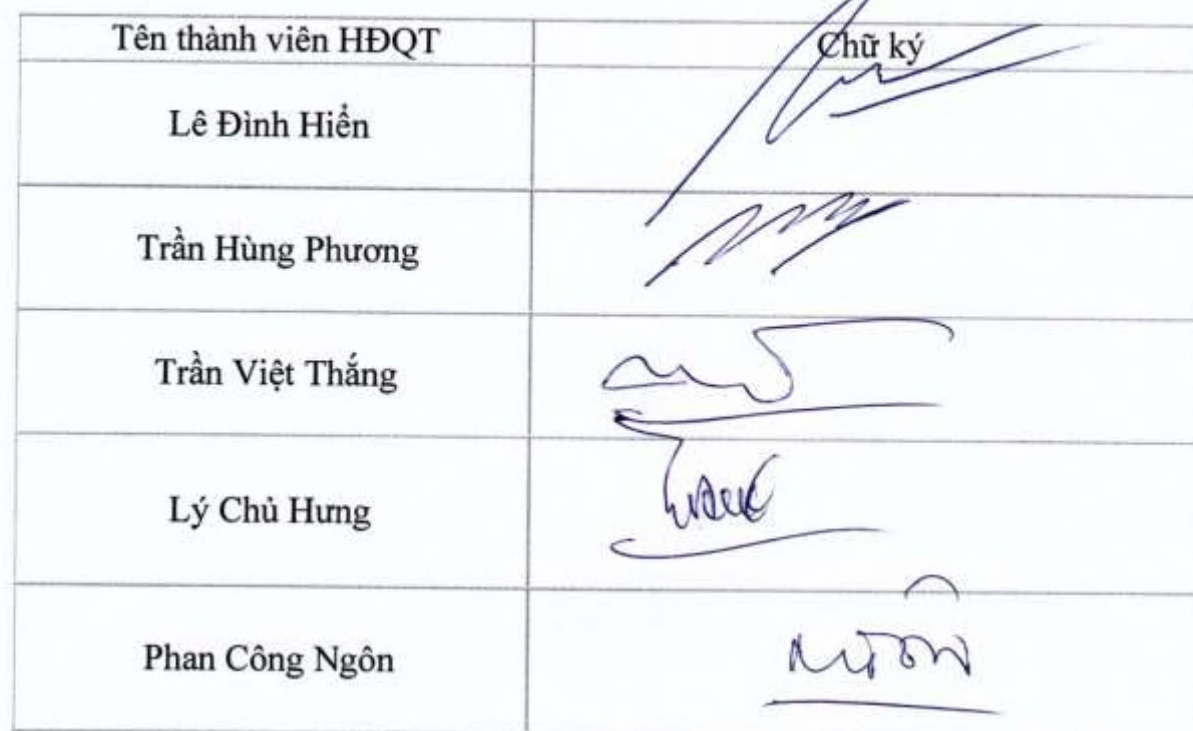 Tên thành viên HĐQT Chữ ký
Lê Đình Hiển
Trần Hùng Phương
Trần Việt Thắng
Lý Chủ Hưng
Phan Công Ngôn